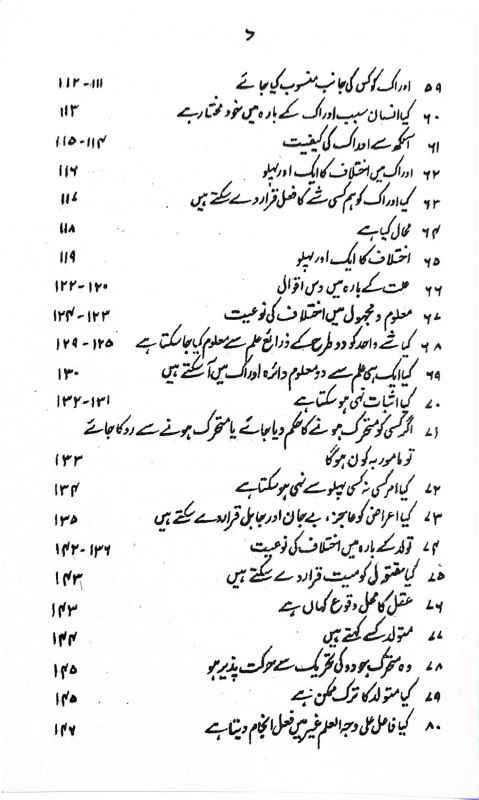 ۷
۵۹ ادراک کو کس کی جانب منسوب کیا جائے ۱۱۱-۱۱۲
۶۰ کیا انسان سبب ادراک کے بارہ میں خود مختار ہے ۱۱۳
۶۱ آنکھ سے ادراک کی کیفیت ۱۱۴-۱۱۵
۶۲ ادراک میں اختلاف کا ایک اور پہلو ۱۱۶
۶۳ کیا ادراک کو ہم کسی شے کا فعل قرار دے سکتے ہیں ۱۱۷
۶۴ محال کیا ہے ۱۱۸
۶۵ اختلاف کا ایک اور پہلو ۱۱۹
۶۶ علت کے بارہ میں دس اقوال ۱۲۰-۱۲۲
۶۷ معلوم و مجہول میں اختلاف کی نوعیت ۱۲۳-۱۲۴
۶۸ کیا شے واحد کو دو طرح کے ذرائع علم سے معلوم کیا جا سکتا ہے ۱۲۵-۱۲۹
۶۹ کیا ایک ہی علم سے دو معلوم دائرہ ادراک میں آ سکتے ہیں ۱۳۰
۷۰ کیا اثبات نہی ہو سکتا ہے ۱۳۱-۱۳۲
۷۱ اگر کسی کو متحرک ہونے کا حکم دیا جائے یا متحرک ہونے سے روکا جائے
تو مامور بہ کون ہوگا ۱۳۳
۷۲ کیا امر کسی نہ کسی پہلو سے نہی ہو سکتا ہے ۱۳۴
۷۳ کیا اعراض کو عاجز، بے جان اور جاہل قرار دے سکتے ہیں ۱۳۵
۷۴ تولد کے بارہ میں اختلاف کی نوعیت ۱۳۶-۱۴۲
۷۵ کیا مقتول کو میت قرار دے سکتے ہیں ۱۴۳
۷۶ عقل کا محل وقوع کہاں ہے ۱۴۳
۷۷ متولد کسے کہتے ہیں ۱۴۴
۷۸ وہ متحرک جو دو کی تحریک سے حرکت پذیر ہو ۱۴۵
۷۹ کیا متولد کا ترک ممکن ہے ۱۴۵
۸۰ کیا فاعل علی وجہ العلم غیر میں فعل انجام دیتا ہے ۱۴۶